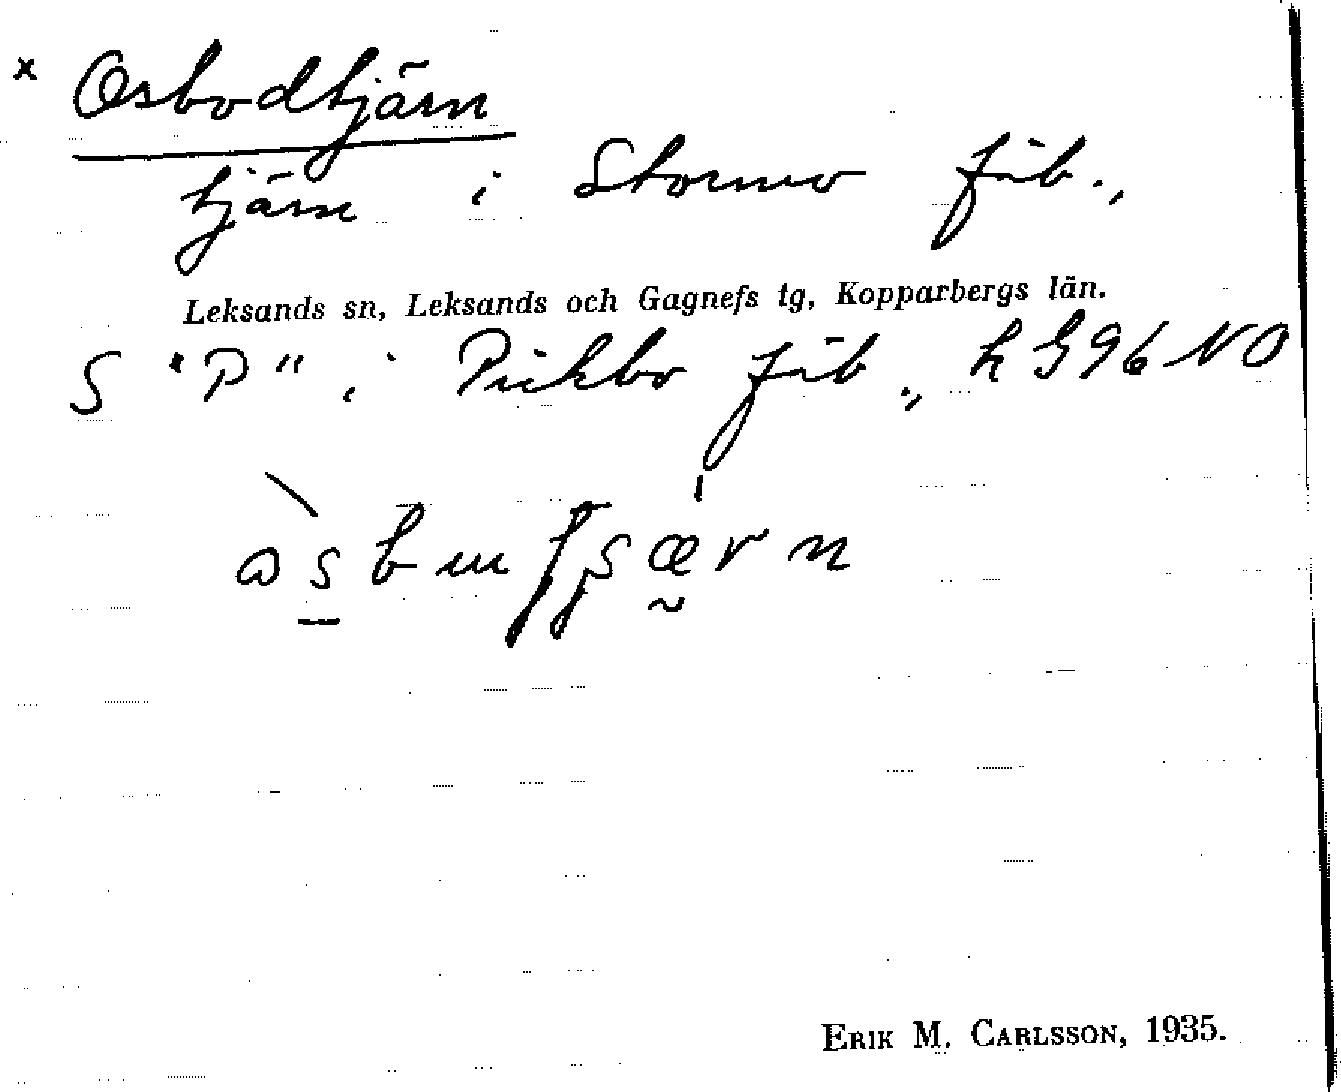 x Osbodtjärn
tjärn i Stormo fäb.,
Leksands sn, Leksands och Gagnefs tg, Kopparbergs län.
S "P" i Pickbo fäb., k G96 NO
ERIK M. CARLSSON, 1935.